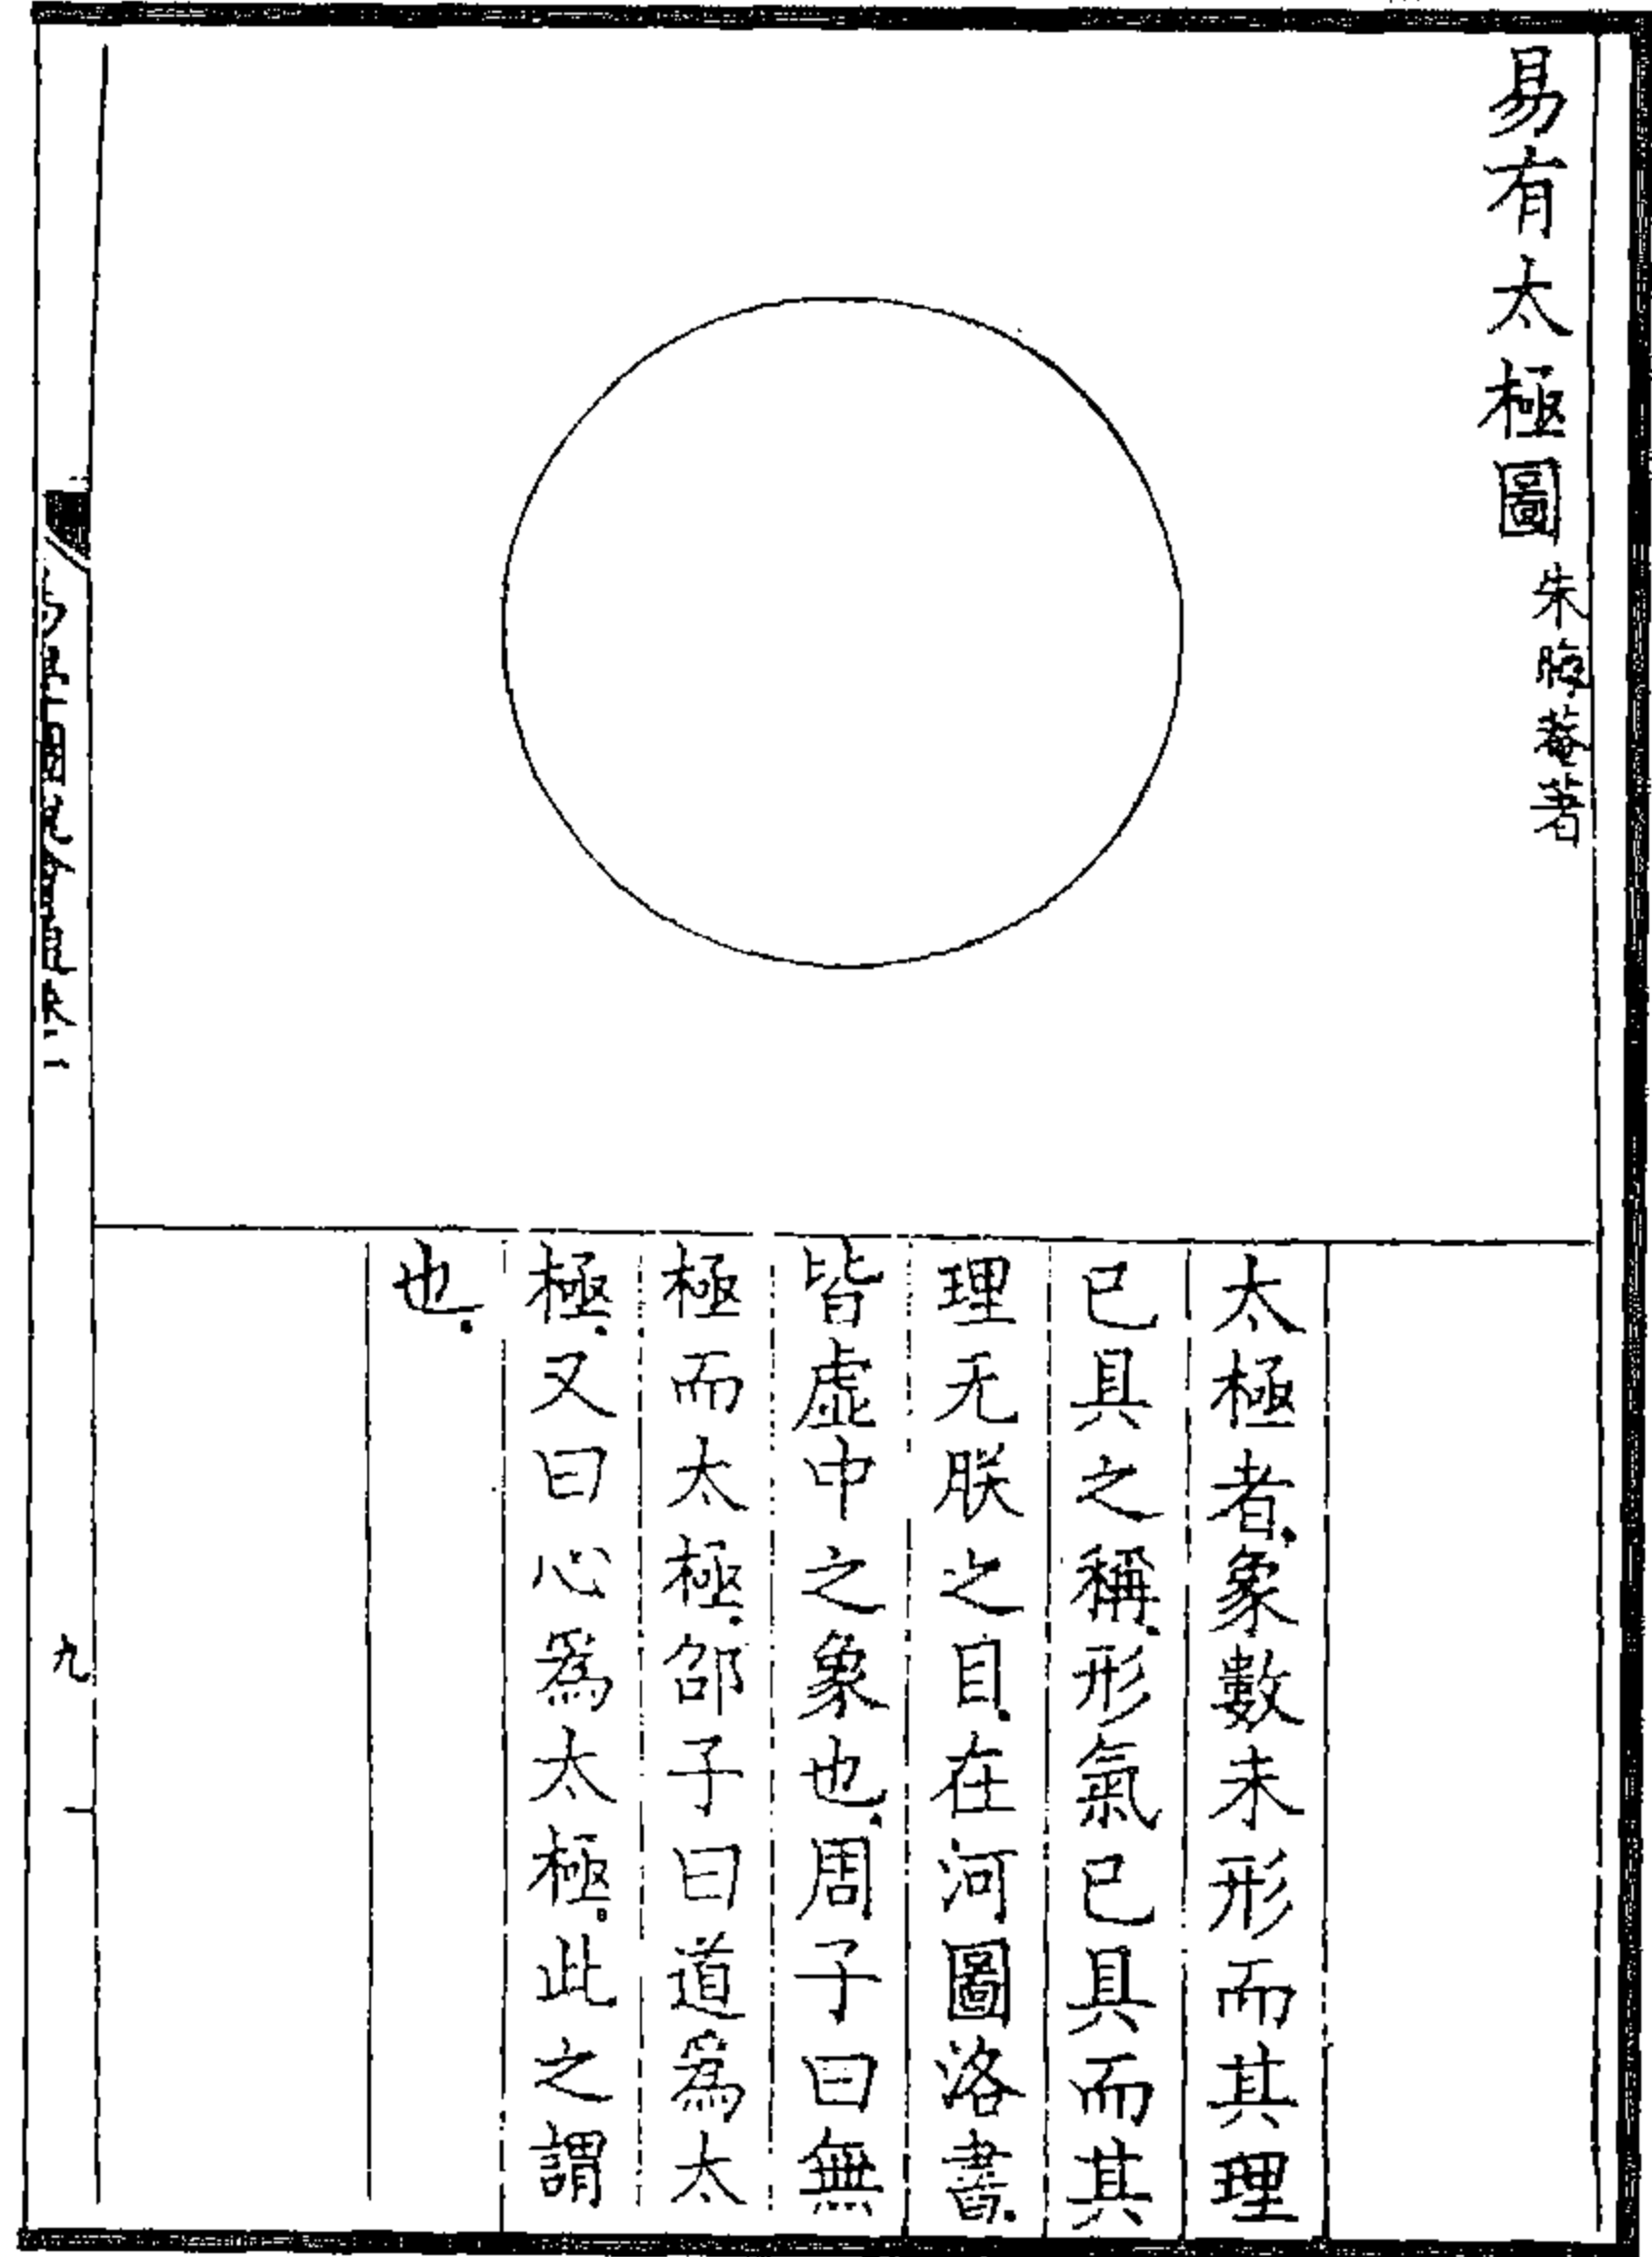 易有太極圖 朱晦菴著
太極者.象數未形而其理
已具之稱.形氣已具而其
理无朕之目.在河圖洛書.
皆虛中之象也.周子曰無
極而太極.邵子曰道為太
極.又曰心為太極。此之謂
也.
九
一